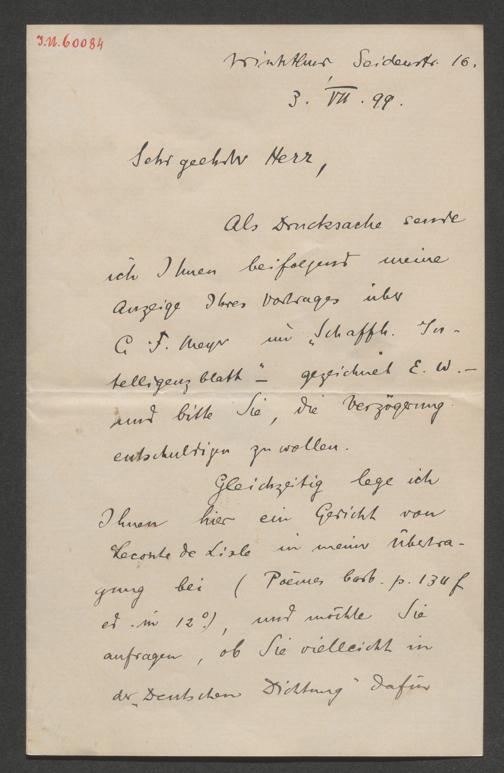 J.N. 60084
Winterthur, Seidenstr. 16.
3. VII. 99.
Sehr geehrter Herr,
Als Drucksache sende
ich Ihnen beifolgend meine
Anzeige Ihres Vortrages über
C. F. Meyer im „Schaffh. In-
telligenzblatt" – gezeichnet E. W. –
und bitte Sie, die Verzögerung
entschuldigen zu wollen.
Gleichzeitig lege ich
Ihnen hier ein Gedicht von
Leconte de Lisle in meiner Übertra-
gung bei (Poèmes barb. p. 134 f
ed. in 12°.), und möchte Sie
anfragen, ob Sie vielleicht in
der „Deutschen Dichtung" dafür